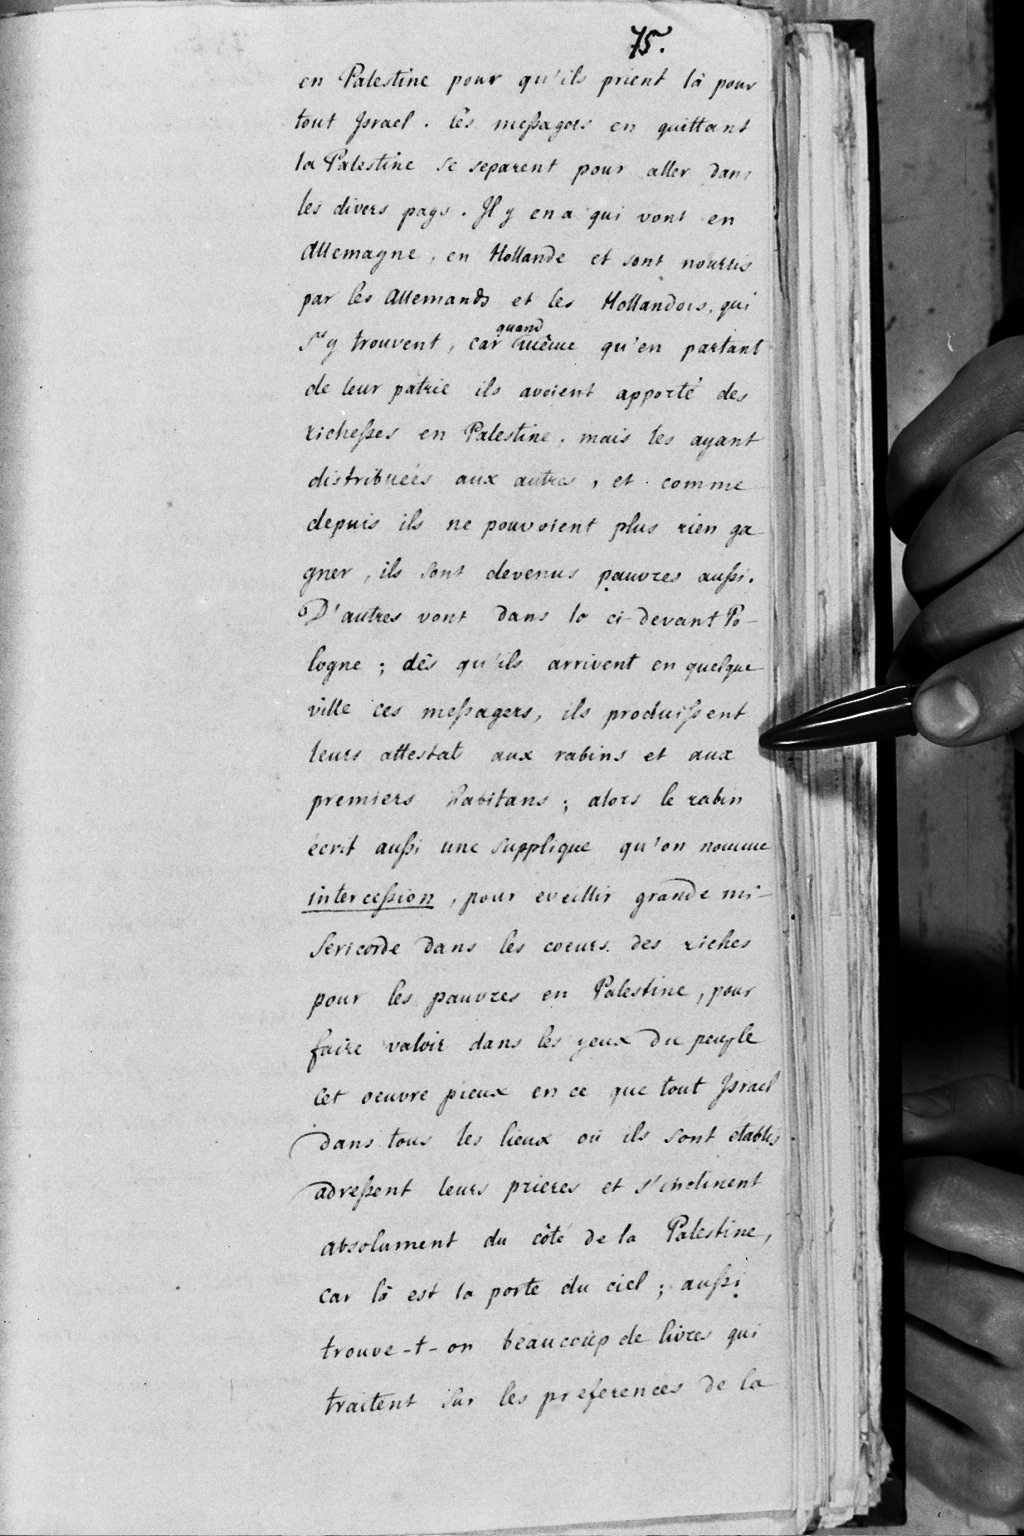 75.
en Palestine pour qu'ils prient là pour
tout Israel. les messagers en quittant
la Palestine se separent pour aller dans
les divers pays. Il y en a qui vont en
Allemagne, en Hollande et sont nourris
par les Allemands et les Hollandois, qui
s'y trouvent, car quand même qu'en partant
de leur patrie ils avoient apporté des
richesses en Palestine, mais les ayant
distribueés aux autres, et comme
depuis ils ne pouvoient plus rien ga
gner, ils sont devenus pauvres aussi.
D'autres vont dans la ci-devant Po-
logne; dês qu'ils arrivent en quelque
ville ces messagers, ils produissent
leurs attestat aux rabins et aux
premiers habitans; alors le rabin
écrit aussi une supplique qu'on nomme
intercession, pour eveillir grande mi-
sericorde dans les coeurs des riches
pour les pauvres en Palestine, pour
faire valoir dans les yeux du peuple
cet oeuvre pieux en ce que tout Israel
dans tous les lieux où ils sont établis
adressent leurs prieres et s'inclinent
absolument du côté de la Palestine,
car là est la porte du ciel; aussi
trouve-t-on beaucoup de livres qui
traitent sur les preferences de la